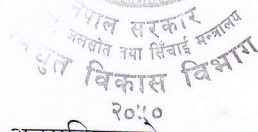 नेपाल सरकार
जलस्रोत तथा सिँचाई मन्त्रालय
विद्युत विकास विभाग